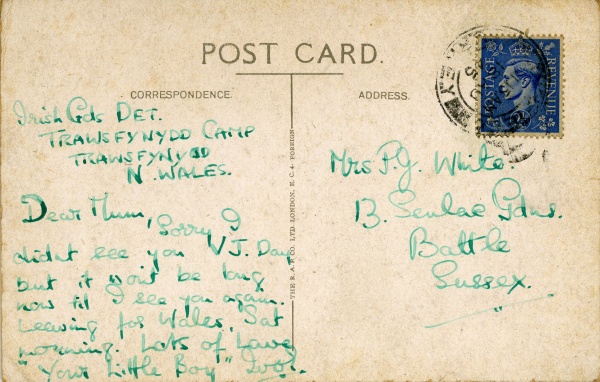 POST CARD.
CORRESPONDENCE.
ADDRESS.
POSTAGE
REVENUE
Irish Gds DET.
TRAWSFYNYDD CAMP
TRAWSFYNYDD
N. WALES.
Dear Mum, Sorry I
didnt see you VJ. Day
but it won't be long
now til I see you again.
Leaving for Wales, Sat
morning. Lots of Love
"Your Little Boy"
THE R.A.P. CO. LTD. LONDON, E.C.4 FOREIGN
Mrs P.J. White.
13. Senlac Gdns.
Battle
Sussex.